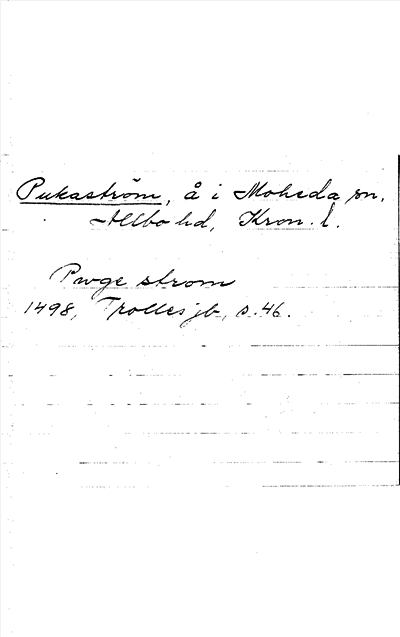 Pukaström, å i Moheda sn,
Allbo hd, Kron. l.
Pwge strom
1498, Trolles jb, s. 46.